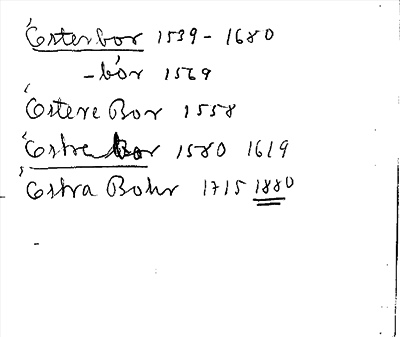 Österbor 1539 - 1680
- bor 1569
Östere Bor 1558
Östre Bor 1580 1619
Östra Bohr 1715 1880